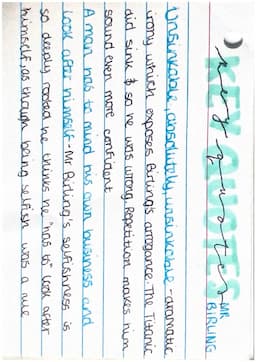 KEY QUOTES
key quotes
MR
BIRLING
Unsinkable, absolutely unsinkable - dramatic
irony which exposes Birling's arrogance. The Titanic
did sink & so he was wrong. Repetition makes him
sound even more confident
A man has to mind his own business and
look after himself - Mr Birling's selfishness is
so deeply rooted he thinks he "has to" look after
himself, as though being selfish was a rule